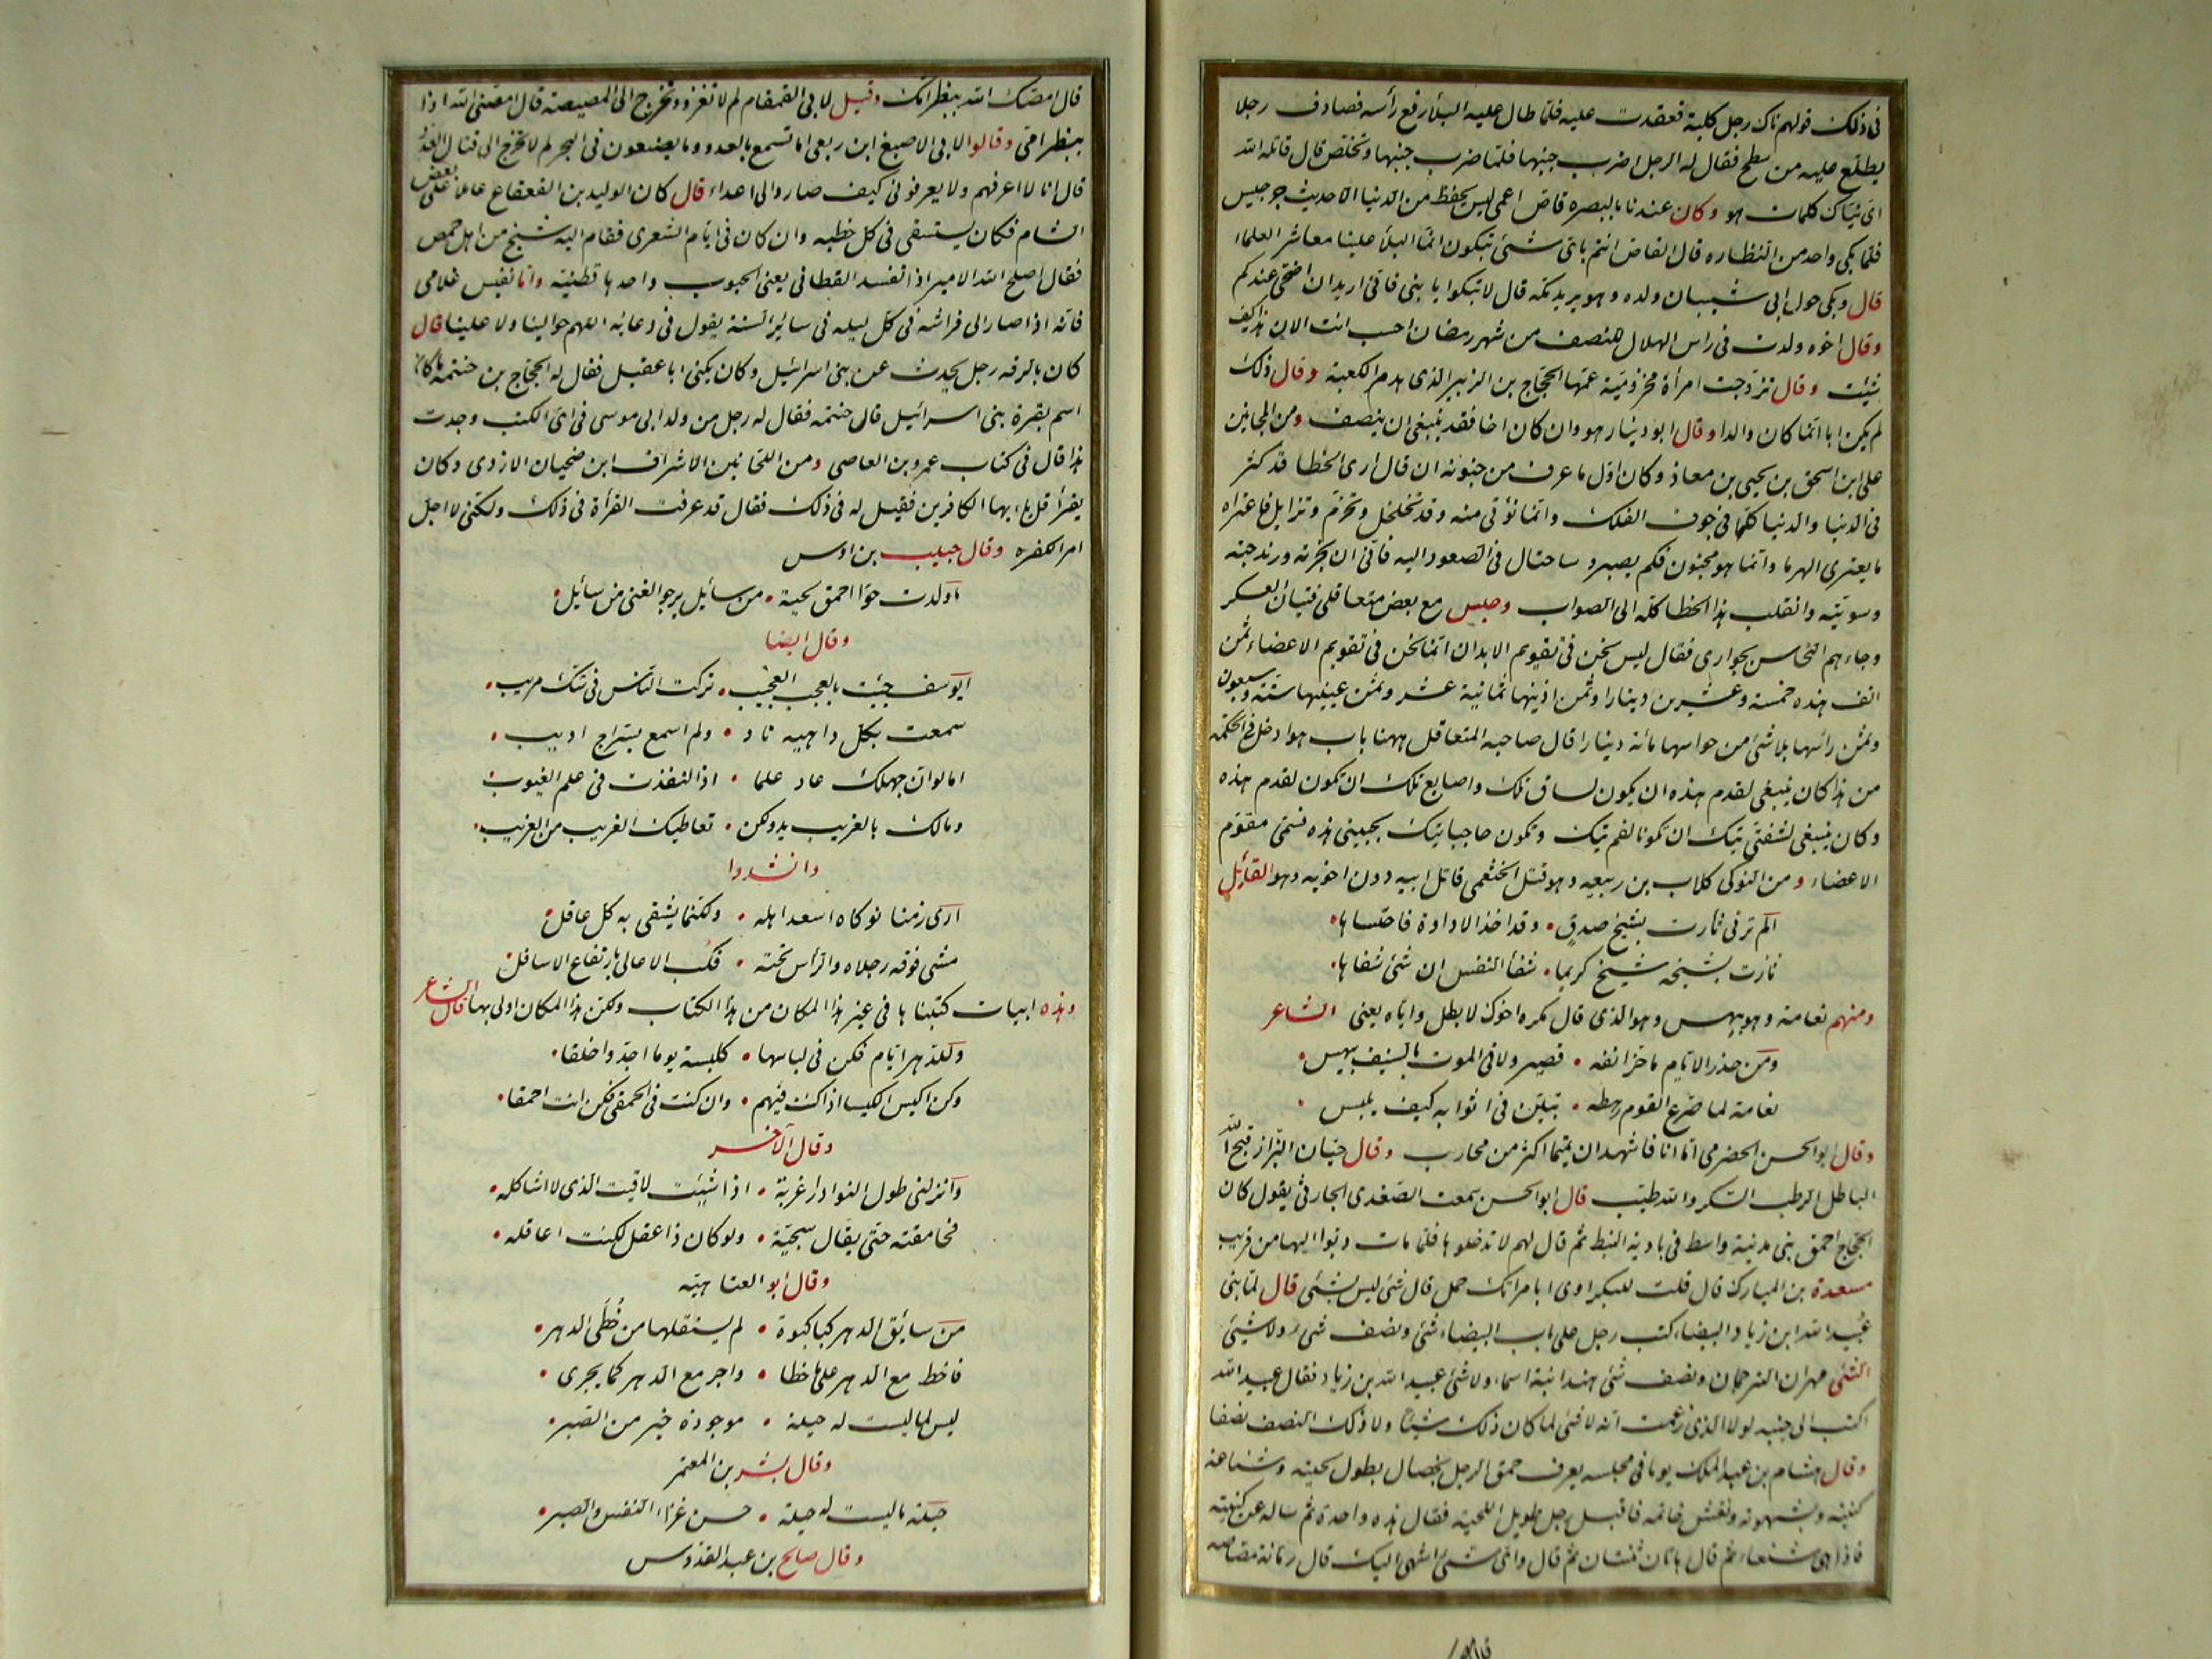 فى ذلك قولهم ناك رجل كلبة فعقدت عليه فلما طال عليه البلأ رفع رأسه فصادف رجلا
يطلع عليه من سطح فقال له الرجل اضرب جنبها فلما ضرب جنبها وتخلص قال قاتله الله
اى نياك كلبات هو وكان عندنا بالبصره قاض اعمى ليس يحفظ من الدنيا الا حديث جرجيس
فلما بكى واحد من النظاره قال القاص انتم باى شىء تبكون انما البلأ علينا معاشر العلماء
قال وبكى حول ابى شيبان ولده وهو يريد مكه قال لا تبكوا يا بنى فانى اريد ان اضحى عندكم
وقال اخوه ولدت فى راس الهلال للنصف من شهر رمضان احسب انت الان هذا كيف
شئت وقال تزوجت امرأة مخزوميّة عمها الحجّاج بن الزبير الذى هدم الكعبة وقال ذلك
لم يكن ابا انما كان والدا وقال ابو دينار هو وان كان اخا فقد ينبغى ان ينصف ومن المجانين
على ابن اسحق بن يحيى بن معاذ وكان اول ما عرف من جنونه ان قال ارى الخطا قد كثر
فى الدنيا والدنيا كلها فى جوف الفلك وانما نؤتى منه وقد تخلخل وتخرّم وتزايل فاعتراه
ما يعترى الهرما وانما هو مجنون فكم يصبر وساحتال فى الصعود اليه فانّى ان نجرته ورندجته
وسويته وانقلب هذا الخطا كله الى الصواب وجلس مع بعض متعاقلى فتيان العسكر
وجاءهم النخاس بجوارى فقال ليس نحن فى تقويم الابدان انما نحن فى تقويم الاعضاء ثمن
انف هذه خمسة وعشرين دينارا وثمن اذنيها ثمانية عشر وثمن عينيها ستة وسبعون
وثمن راسها بلا شىء من حواسها مائة دينارا قال صاحبه المتعاقل ههنا باب هو ادخل فى الحكمة
من هذا كان ينبغى لقدم هذه ان يكون لساق تلك واصابع تلك ان تكون لقدم هذه
وكان ينبغى لشفتى تيك ان تكونا لفم تيك وتكون حاجبا تيك بجبينى هذه فسمّى مقوّم
الاعضاء ومن النوكى كلاب بن ربيعه وهو قتل الخثعمى قاتل ابيه دون اخوته وهو القائل
الم ترنى ثارت بشيخ صدق • وقد اخذ الاداوة فاحتساها •
ثارت بشيخه شيخ كريما • شفأ النفس ان شئ شفاها •
ومنهم نعامة وهو بيهس وهو الذى قال مكره اخوك لا بطل واياه يعنى الشاعر
ومن حذر الايام ما حز انفه • قصير ولاقى الموت بالسيف بيهس •
نعامة لما صرع القوم رهطه • تبيّن فى اثوابه كيف يلبس •
وقال ابو الحسن الحضرمى اما انا فاشهد ان تميما اكثر من محارب وقال حيّان البزاز قبح الله
الباطل الرطب السكر والله طيّب قال ابو الحسن سمعت الصغدى الحارثى يقول كان
الحجّاج احمق بنى مدينة واسط فى بادية النبط ثم قال لهم لا تدخلوها فلما مات دبوا اليها من قريب
مسعدة بن المبارك قال قلت للبكراوى ابا مراتك حمل قال شئ ليس بشئ قال لما بنى
عبيد الله ابن زياد البيضاء كتب رجل على باب البيضاء شئ ونصف شئ ولا شيئ
الشئ مهران الترجمان ونصف شئ هند ابنة اسماء ولا شئ عبيد الله بن زياد فقال عبيد الله
اكتب الى جنبه لولا الذى زعمت انه لا شئ لما كان ذلك شيئا ولا ذلك النصف نصفا
وقال هشام بن عبد الملك يوما فى مجلسه يعرف حمق الرجل بخصال بطول لحيته وشناعة
كنيته وبشهوته ونقش خاتمه فاقبل رجل طويل اللحية فقال هذه واحدة ثم ساله عن كنيته
فاذا هى شنعاء ثم قال هاتان ثنتان ثم قال واى شئ اشهى اليك قال رمانة مصاصه
قال امصّك الله ببظر امّك وقيل لابى القمقام لم لا تغزو وتخرج الى المصيصة قال امصّنى الله اذا
ببظر امّى وقالوا لابى الاصبغ ابن ربعى اما تسمع بالعدو وما يصنعون فى البحر لم لا تخرج الى قتال العدوّ
قال انا لا اعرفهم ولا يعرفونى كيف صاروا لى اعداء قال كان الوليد بن القعقاع عاملا على بعض
الشام فكان يستسقى فى كل خطبه وان كان فى ايّام الشعرى فقام اليه شيخ من اهل حمص
فقال اصلح الله الامير اذا تفسد القطانى يعنى الحبوب واحدها قطنيّه واما نفيس غلامى
فانه اذا صار الى فراشه فى كلّ ليله فى سائر السنة يقول فى دعائه اللهم حوالينا ولا علينا قال
كان بالرقه رجل يحدث عن بنى اسرائيل وكان يكنى ابا عقيل فقال له الحجّاج بن حنتمه ما كان
اسم بقرة بنى اسرائيل قال حنتمه فقال له رجل من ولد ابى موسى فى اى الكتب وجدت
هذا قال فى كتاب عمرو بن العاصى ومن اللحّانين الاشراف ابن ضحيان الازدى وكان
يقرأ قل يا ايها الكافرين فقيل له فى ذلك فقال قد عرفت القرأة فى ذلك ولكنى لا اجل
امر الكفره وقال حبيب بن اوس
ما ولدت حوّا احمق لحية • من سائل يرجو الغنى من سائل •
وقال ايضا
ايوسف جيئت بالعجب العجيب • تركت الناس فى شك مريب •
سمعت بكل داهيه ناد • ولم اسمع بسراج اديب •
اما لو انّ جهلك عاد علما • اذا لنفذت فى علم الغيوب •
ومالك بالغريب يد ولكن • تعاطيك الغريب من الغريب •
وانشدوا
ارى زمنا نوكاه اسعد اهله • ولكنما يشقى به كل عاقل •
مشى فوقه رجلاه والرأس تحته • فكب الاعالى بارتفاع الاسافل •
وهذه ابيات كتبناها فى غير هذا المكان من هذا الكتاب ولكن هذا المكان اولى بها قال الشاعر
وللدهر ايّام فكن فى لباسها • كلبسة يوما اجدّ واخلقا •
وكن اكيس الكيسا اذا كنت فيهم • وان كنت فى الحمقى فكن انت احمقا •
وقال الآخر
وانزلنى طول النوا دار غربة • اذا شيئت لاقيت الذى لا اشاكله •
فحامقته حتّى يقال سجيّة • ولو كان ذا عقل لكنت اعاقله •
وقال ابو العتاهيّه
من سابق الدهر كبا كبوة • لم يستقلها من خُطَى الدهر •
فاخط مع الدهر على ما خطا • واجر مع الدهر كما يجرى •
ليس لما ليست له حيلة • موجودة خير من الصبر •
وقال بشر بن المعتمر
حيلة ما ليست له حيلة • حسن عزاء النفس والصبر •
وقال صالح بن عبد القدوس